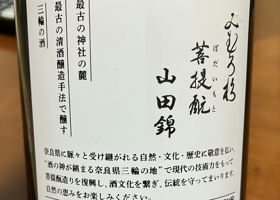 みむろ杉
菩提酛
ぼだいもと
山田錦
最古の神社の麓
最古の清酒醸造手法で醸す
三輪の酒
奈良県に脈々と受け継がれる自然・文化・歴史に敬意を払い、
"酒の神が鎮まる奈良県三輪の地"で現代の技術力をもって
菩提酛造りを復興し、酒文化を繋ぎ、伝統を守ってまいります。
自然の恵みをお楽しみください。